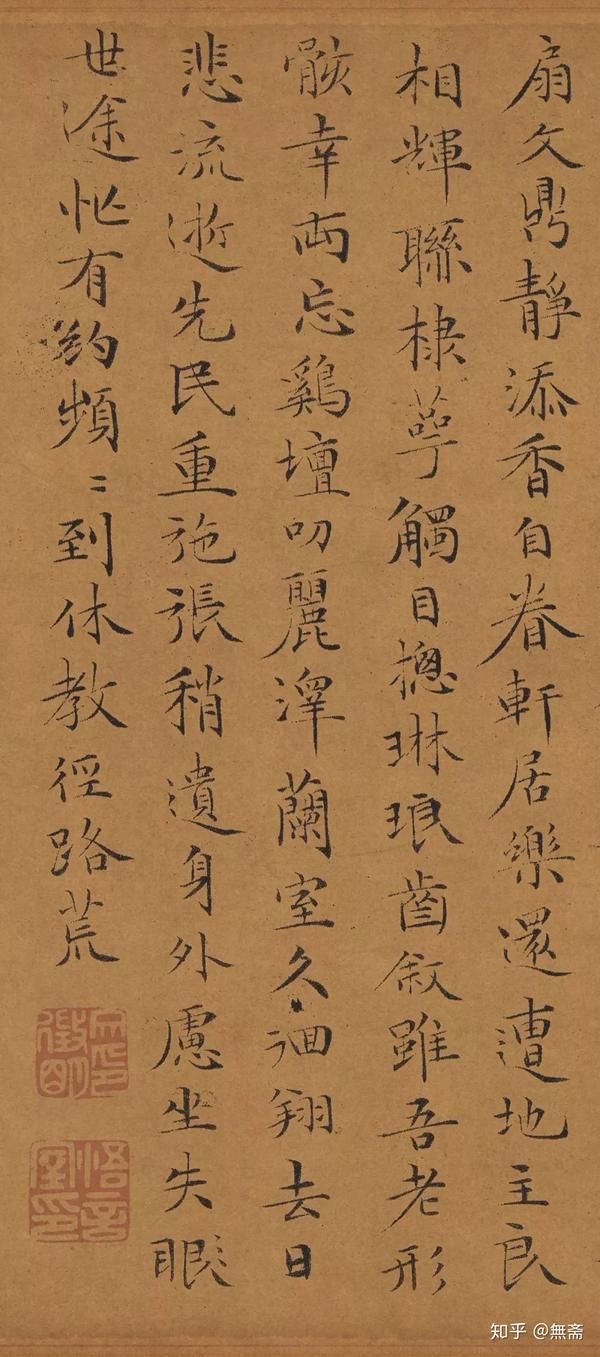 扇文鼎靜添香自眷軒居樂還遭地主良
相輝聯棣萼觸目摠琳琅齒叙雖吾老形
骸幸両忘鷄壇叨麗澤蘭室久徊翔去日
悲流逝先民重施張稍遺身外慮坐失眼
世途忙有約頻〻到休教徑路荒
文徵明印
悟言室印
知乎 @無斋